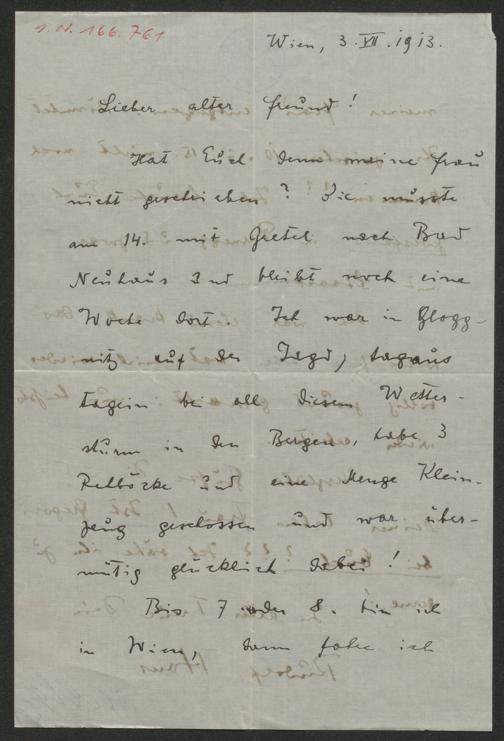 I.N. 166.761
Wien, 3. VII. 1913.
Lieber alter Freund!
Hat Euch denn meine Frau
nicht geschrieben? Sie musste
am 14. mit Gretel nach Bad
Neuhaus und bleibt noch eine
Woche dort. Ich war in Glogg-
nitz auf der Jagd, tagaus
tagein bei all diesem Wetter-
sturm in den Bergen, habe 3
Rehböcke und eine Menge Klein-
zeug geschossen und war über-
mütig glücklich dabei!
Bis 7 oder 8. bin ich
in Wien, dann fahre ich